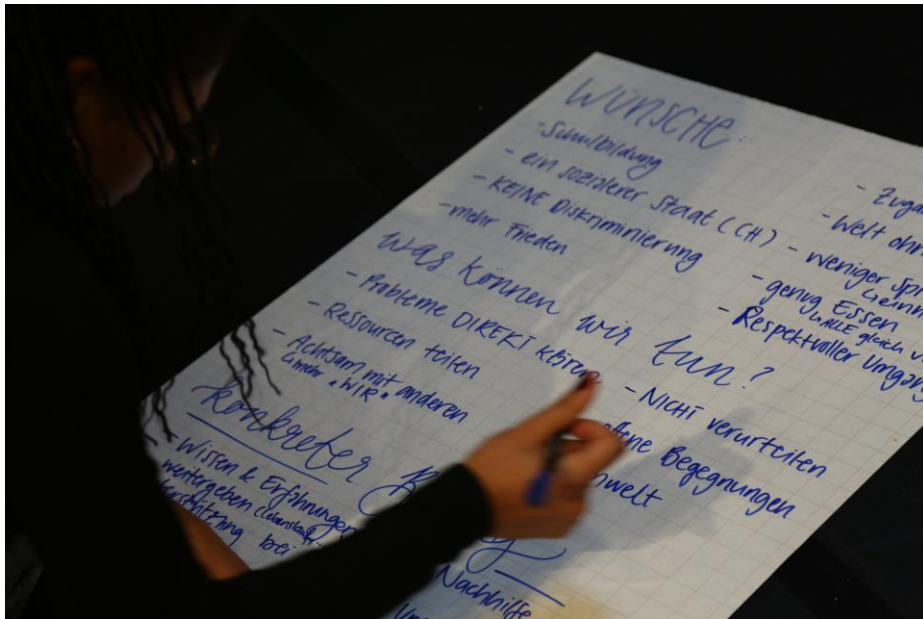 WÜNSCHE:
- Schulbildung
- ein sozialerer Staat (CH)
- KEINE Diskriminierung
- mehr Frieden
- Zuga
- Welt ohn
- weniger Spr
- genug Essen
↳ ALLE gleich v
- Respektvoller Umgang
was können wir tun?
- Probleme DIREKT klären
- Ressourcen teilen
- Achtsam mit anderen
↳ mehr "WIR"
- NICHT verurteilen
offene Begegnungen
mwelt
konkreter B
Wissen & Erfahrungen
weitergeben (Lebenslauf-
terstützung bei
Nachhilfe